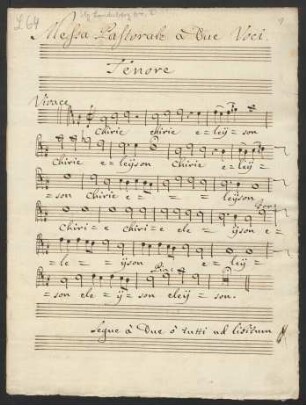 L64
Messa Pastorale à Due Voci
Tenore
Vivace
Chirie chirie e=leÿ=son
Chirie eleÿson Chirie eleÿ=
=son Chirie e= = = leÿson
Chiri=e chiri=e ele= ÿson e=
=le= ÿson e=leÿ=
=son ele=ÿ=son eleÿ=son.
Segue à Due ò tutti ad libitum